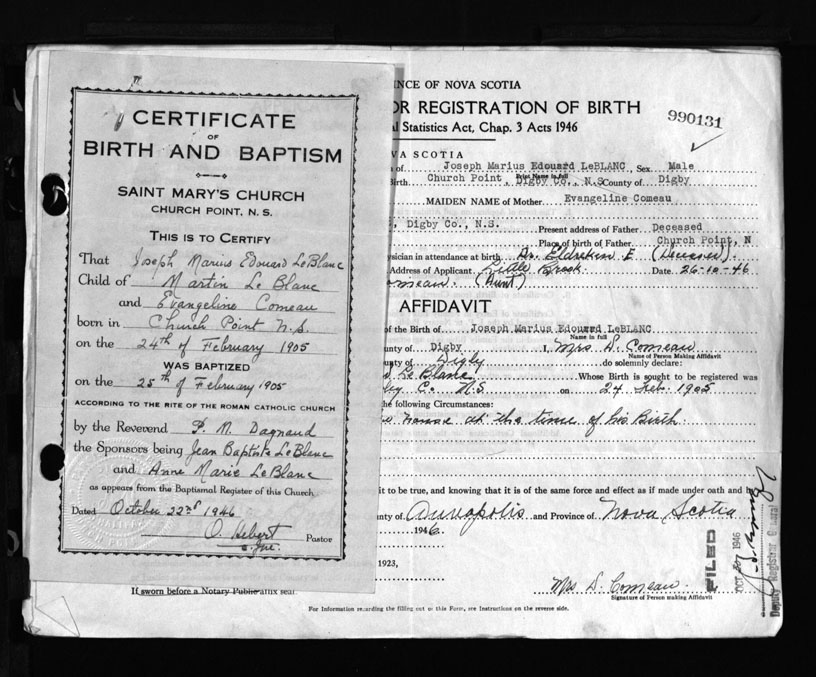 CERTIFICATE
OF
BIRTH AND BAPTISM
SAINT MARY'S CHURCH
CHURCH POINT, N. S.
THIS IS TO CERTIFY
That Joseph Marius Edouard LeBlanc
Child of Martin Le Blanc
and Evangeline Comeau
born in Church Point N.S.
on the 24th of February 1905
WAS BAPTIZED
on the 25th of February 1905
ACCORDING TO THE RITE OF THE ROMAN CATHOLIC CHURCH
by the Reverend P. M. Dagnaud
the Sponsors being Jean Baptiste LeBlanc
and Anne Marie LeBlanc
as appears from the Baptismal Register of this Church
Dated October 22nd 1946
O. Hébert
Pastor
INCE OF NOVA SCOTIA
OR REGISTRATION OF BIRTH
990131
al Statistics Act, Chap. 3 Acts 1946
VA SCOTIA
of Joseph Marius Edouard LeBLANC, Sex Male
Print Name in full
Birth Church Point, Digby Co., N.S. County of Digby
MAIDEN NAME of Mother Evangeline Comeau
, Digby Co., N.S. Present address of Father Deceased
Place of birth of Father Church Point, N
ysician in attendance at birth Dr. E (Deceased).
Address of Applicant Little Brook Date 26-10-46
omeau. (Aunt)
AFFIDAVIT
of the Birth of Joseph Marius Edouard LeBLANC
Name in full
unty of Digby I, Mrs D. Comeau
Name of Person Making Affidavit
unty of Digby do solemnly declare:
Le Blanc Whose Birth is sought to be registered was
by Co. N.S. on 24 Feb. 1905
the following Circumstances:
house at the time of his Birth
it to be true, and knowing that it is of the same force and effect as if made under oath and
nty of Annapolis and Province of Nova Scotia
1946.
1923,
FILED
OCT 1946
Deputy Registrar General
If sworn before a Notary Public affix seal
Mrs D. Comeau.
Signature of Person making Affidavit
For Information regarding the filling out of this Form, see Instructions on the reverse side.